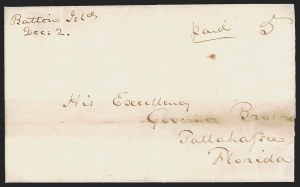 Batton Isl^d
Dec: 2.
paid 5
His Excellency
Governor Brown
Tallahassee
Florida